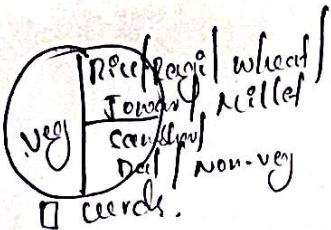 Rice/Ragi/wheat/
Jowar/Millet
Veg
Dal/Non-veg
curds.